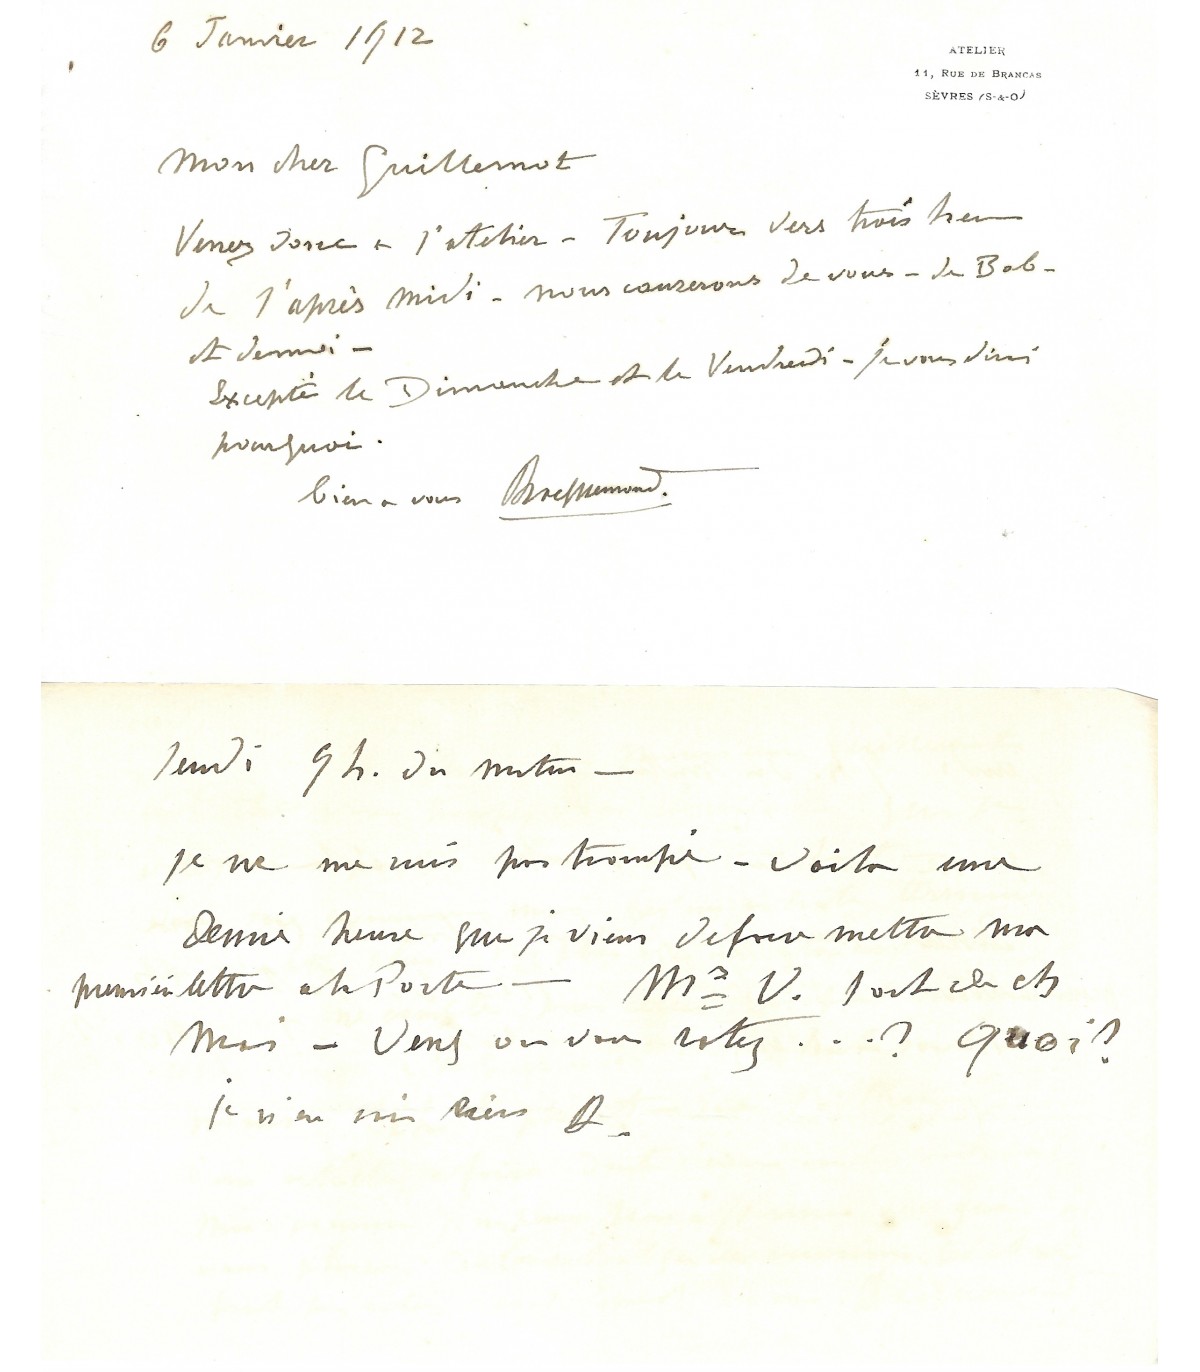 6 Janvier 1912
ATELIER
11, RUE DE BRANCAS
SÈVRES (S-&-O)
Mon cher Guillemot
Venez donc a l'atelier - Toujours vers trois heu
de l'après midi - nous causerons de vous - de Bob -
et de moi -
Excepté le Dimanche et le Vendredi - je vous dirai
pourquoi.
bien a vous Bracquemond.
Jeudi 9 h. du matin -
je ne me suis pas trompé - Voila une
Demie heure que je viens de faire mettre ma
première lettre a la Poste - Mr V. sort de ch
Mais - Venez ou vous restez . . . ? Quoi ?
je n'en sais riens B.